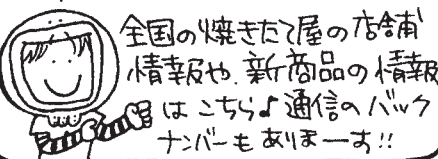 全国の焼きたて屋の店舗
情報や、新商品の情報
はこちら♪通信のバック
ナンバーもありまーす!!